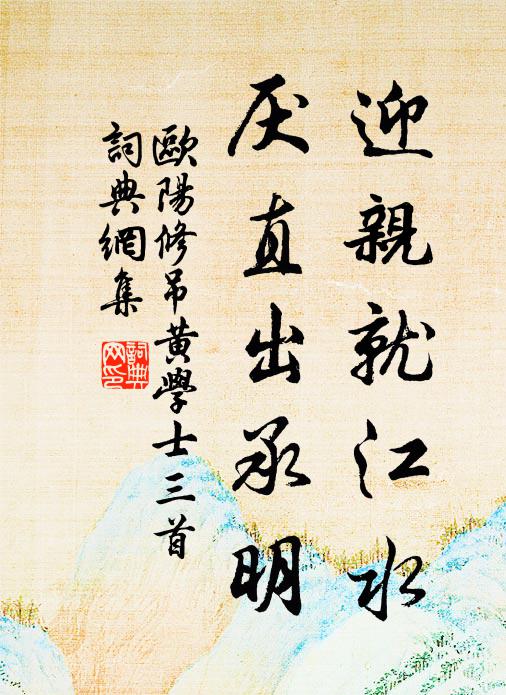 迎親就江水
厌直出承明
歐陽修吊黃學士三首
詞典網集
詞典网印